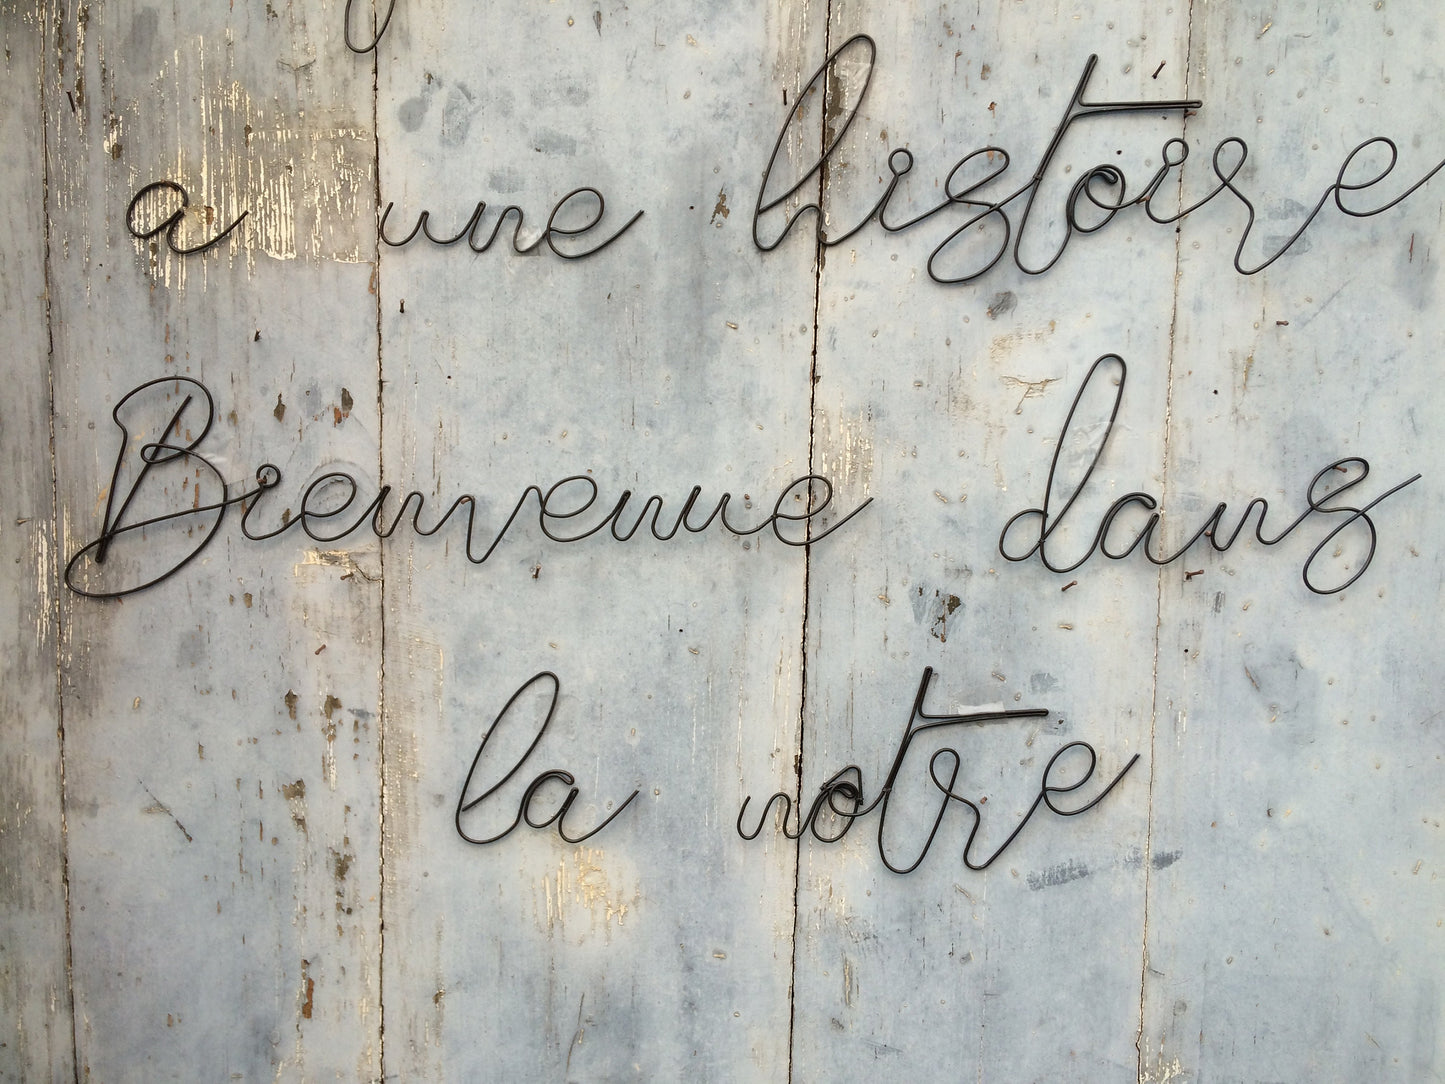 a une histoire
Bienvenue dans
la notre